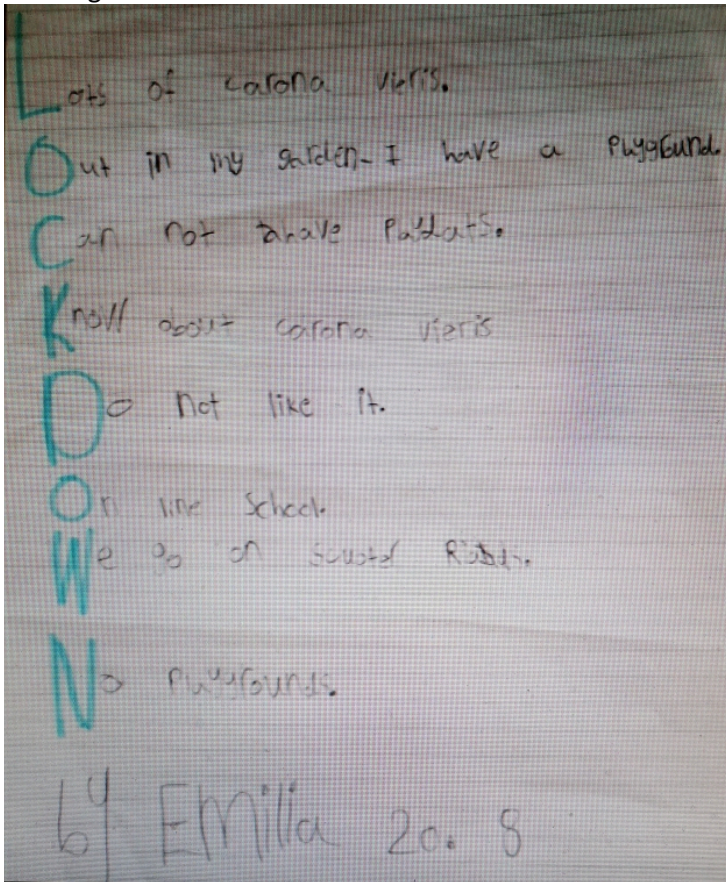 Lots of carona vieris.
Out in my garden. I have a playground.
Can not have
Knoll about carona vieris
Do not like it.
On line School.
We go on
No playgrounds.
by Emilia 20. 8